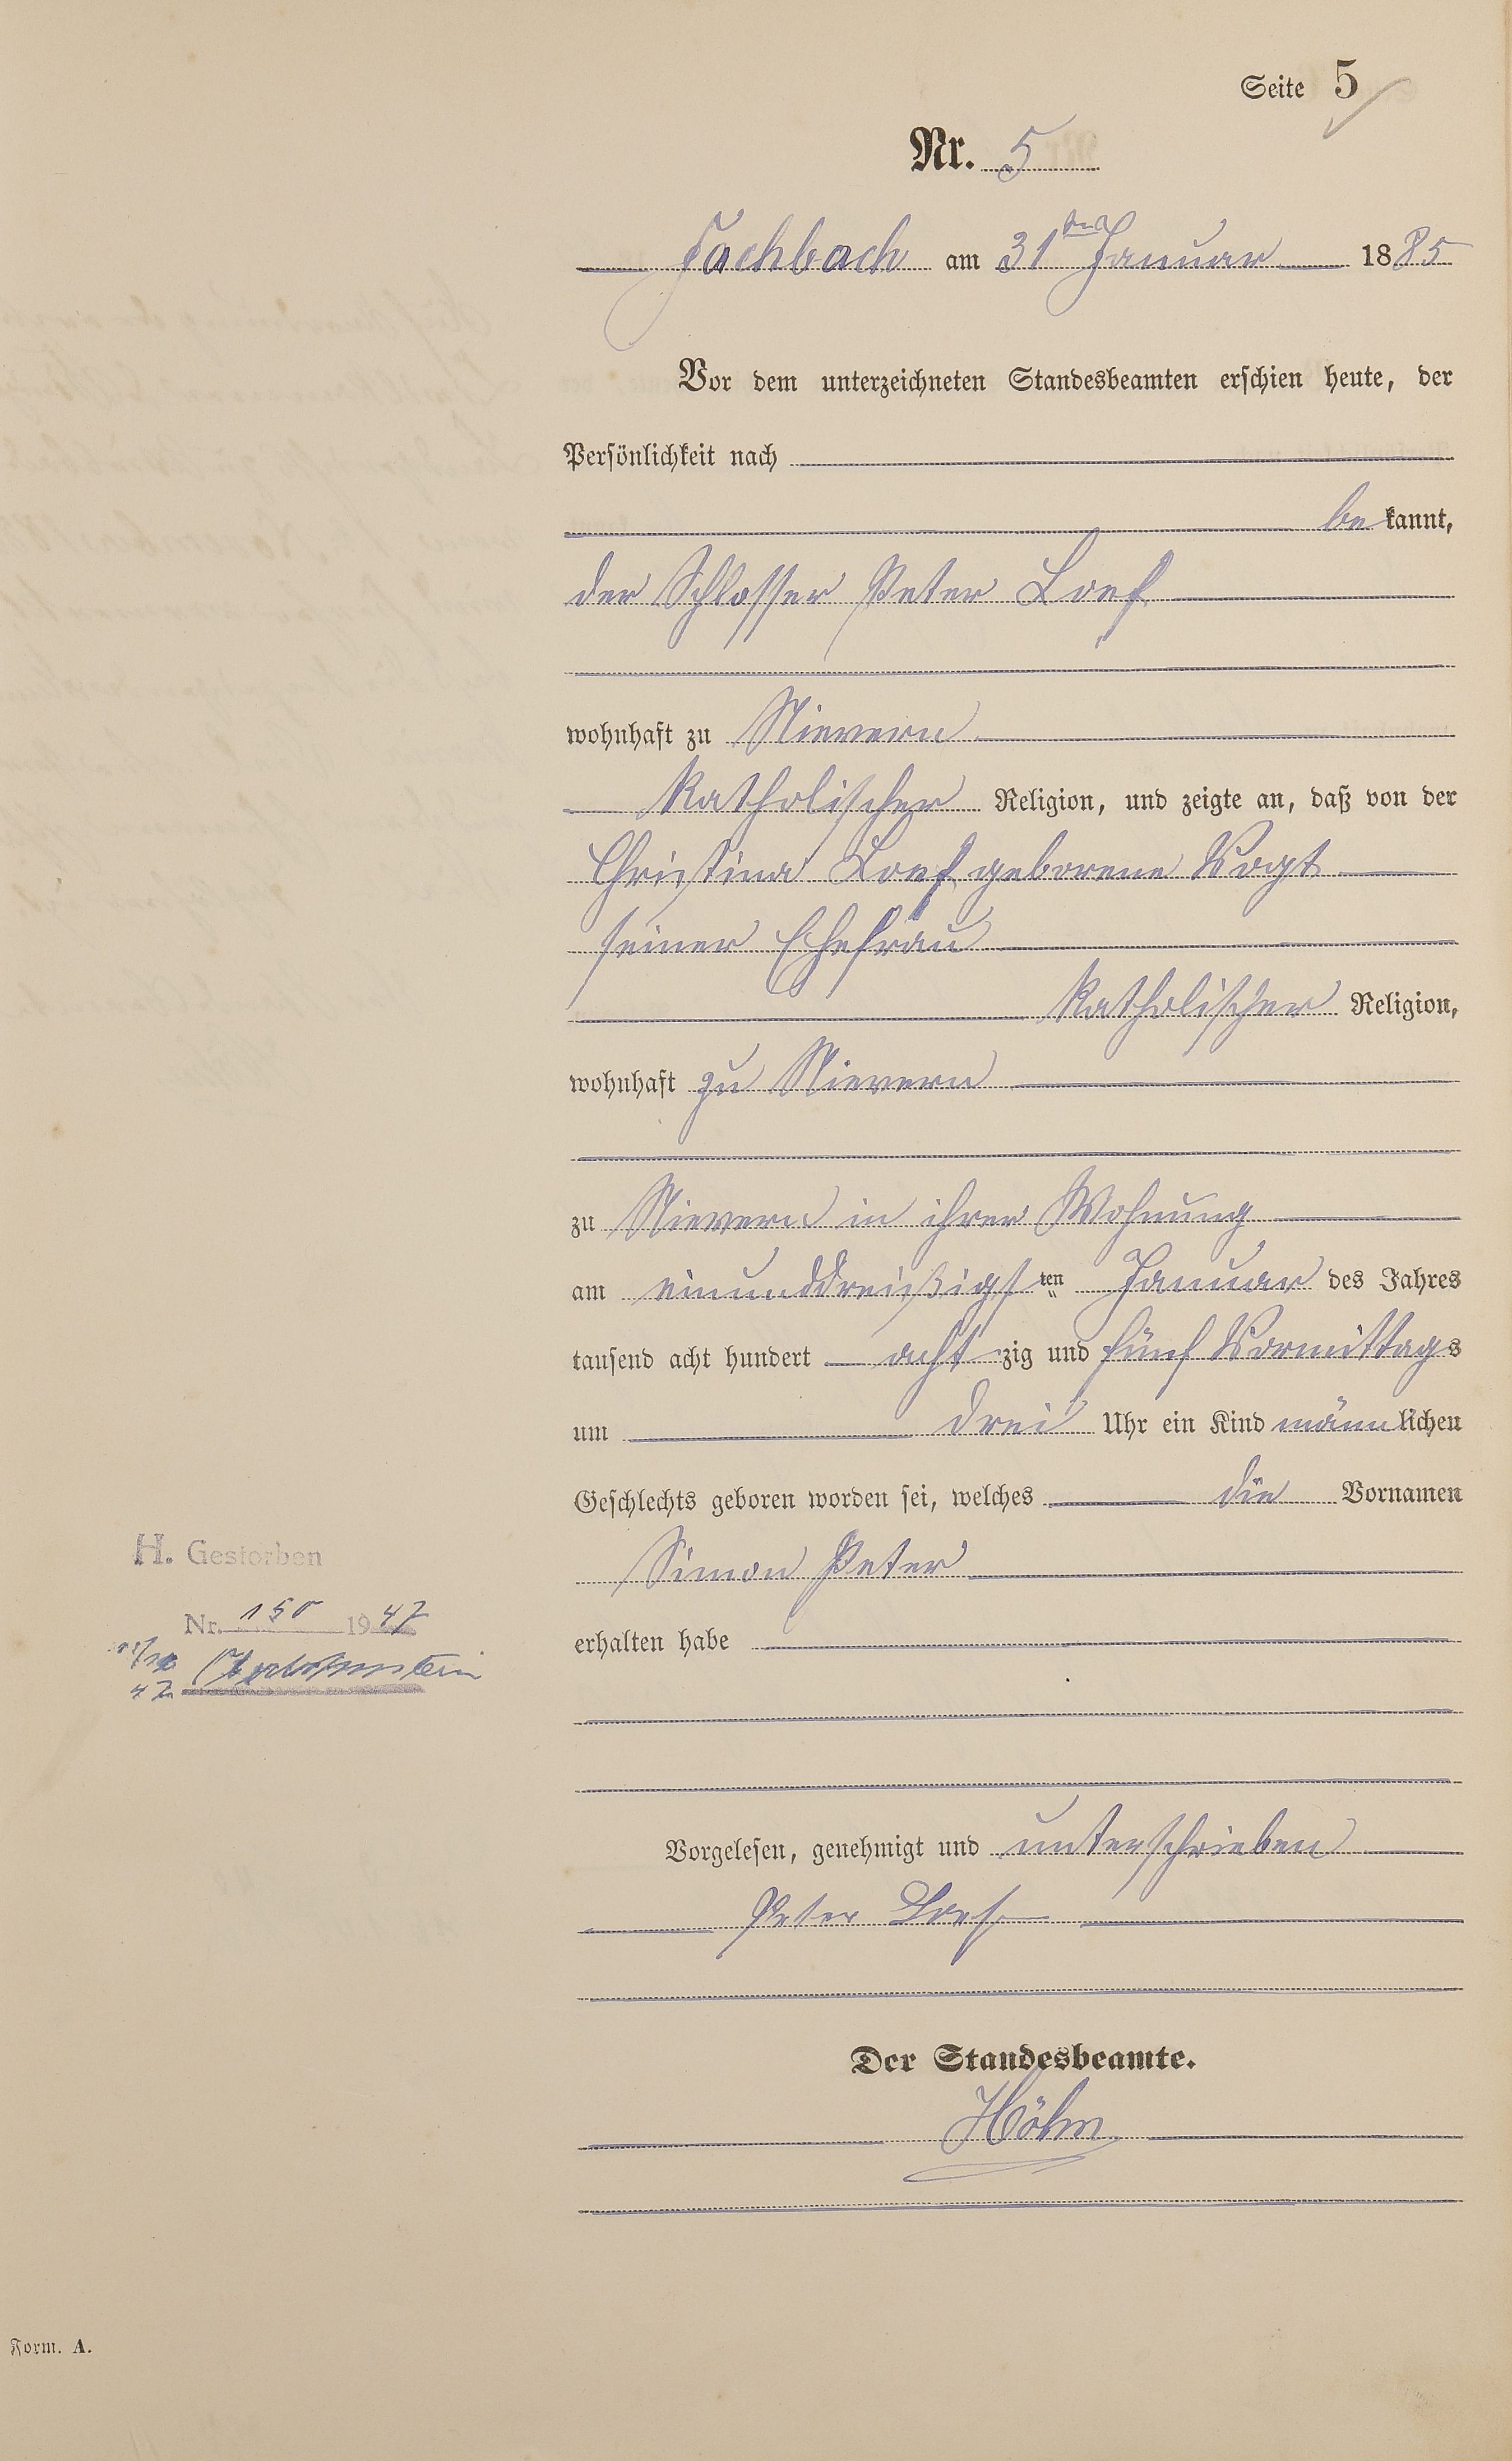 Seite 5
Nr. 5
Fachbach am 31ten Januar 1885
Vor dem unterzeichneten Standesbeamten erschien heute, der
Persönlichkeit nach
bekannt,
der Schlosser Peter Loef
wohnhaft zu Nievern
katholischer Religion, und zeigte an, daß von der
Christina Loef geborene Vogt
seiner Ehefrau
katholischer Religion,
wohnhaft zu Nievern
zu Nievern in ihrer Wohnung
am einunddreißigsten Januar des Jahres
tausend acht hundert achtzig und fünf Vormittags
um drei Uhr ein Kind männlichen
Geschlechts geboren worden sei, welches die Vornamen
Simon Peter
erhalten habe
H. Gestorben
Nr. 150 1947
47
Vorgelesen, genehmigt und unterschrieben
Peter Loef
Der Standesbeamte.
Höhn
Form. A.